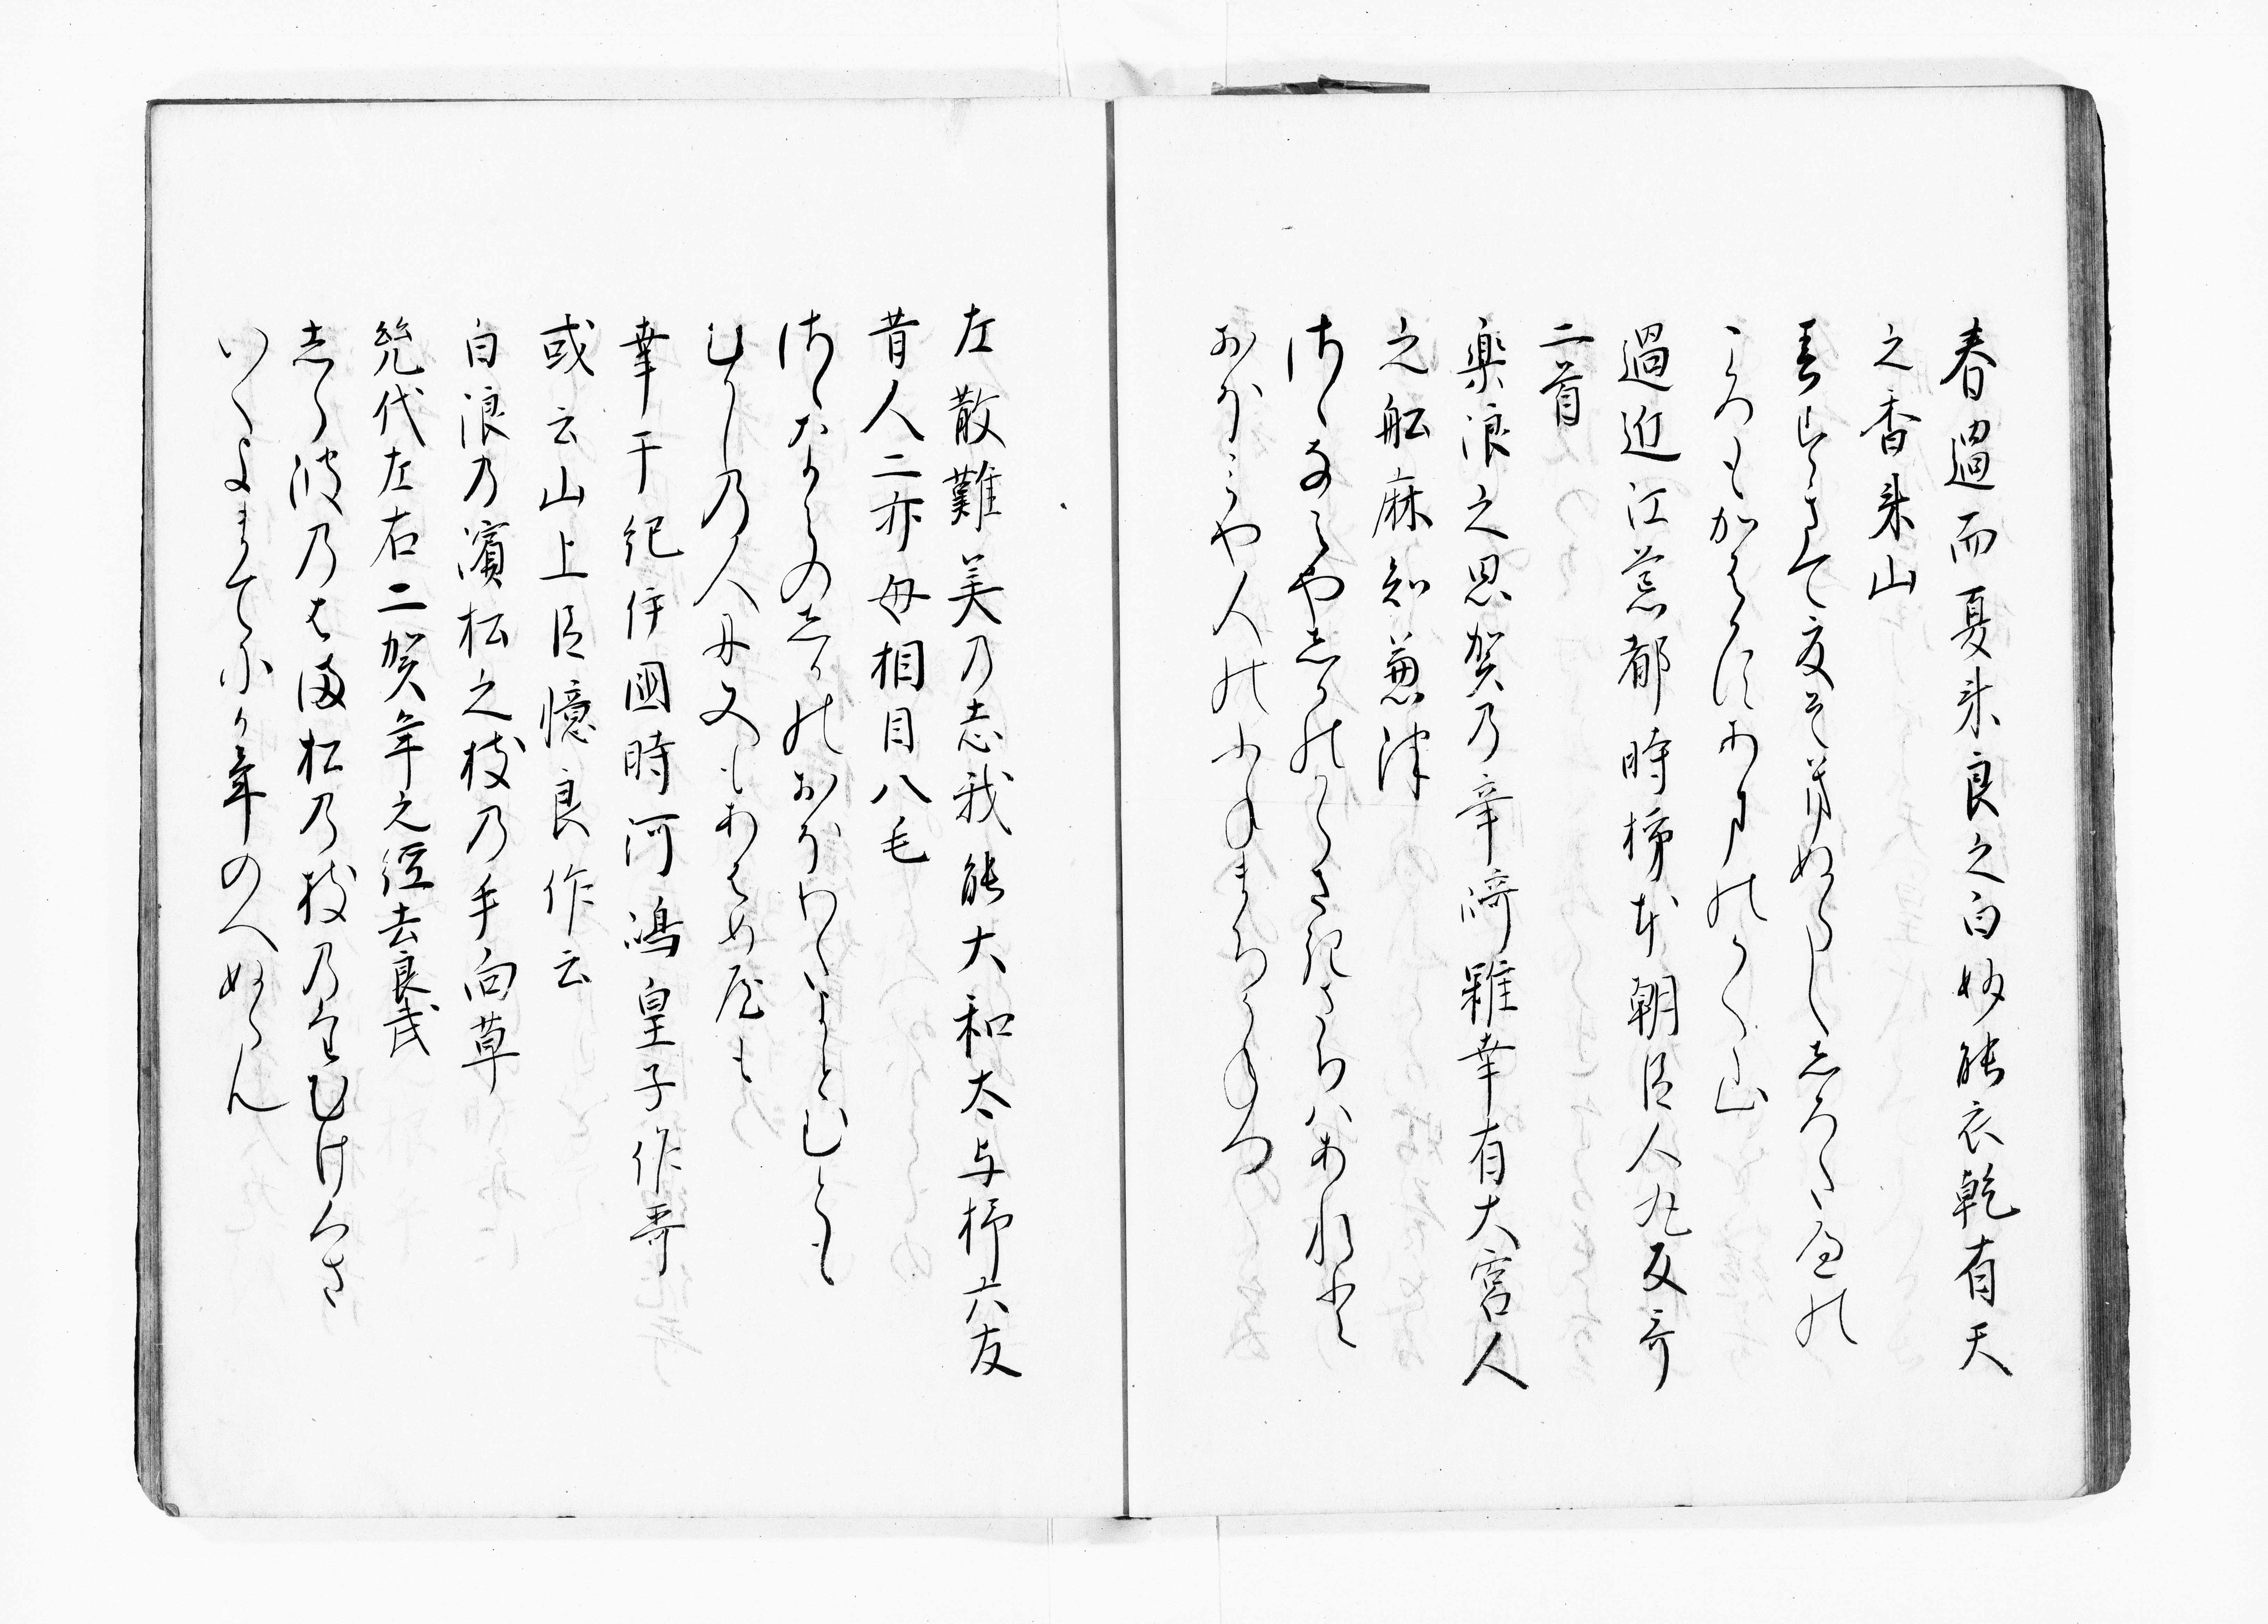 春過而夏来良之白妙能衣乾有天
之香来山
春すきて夏そきぬらししろたへの
ころもかはかすあまのかく山
過近江荒都時柿本朝臣人丸反哥
二首
楽浪之思賀乃辛崎雖幸有大宮人
之舩麻知兼津
さゝなみや志かのからさきさちはあれと
おほみや人のふねまちかねつ
左散難美乃志我能大和太与杼六友
昔人二亦母相目八毛
さゝなみの志かのおほわたよとむとも
むかしの人に又もあはめやも
幸于紀伊國時河嶋皇子作哥
或云山上臣憶良作云
白浪乃濱松之枝乃手向草
幾代左右二賀年之経去良武
志ら波乃はま松乃枝乃たむけくさ
いくよまてにか年のへぬらん